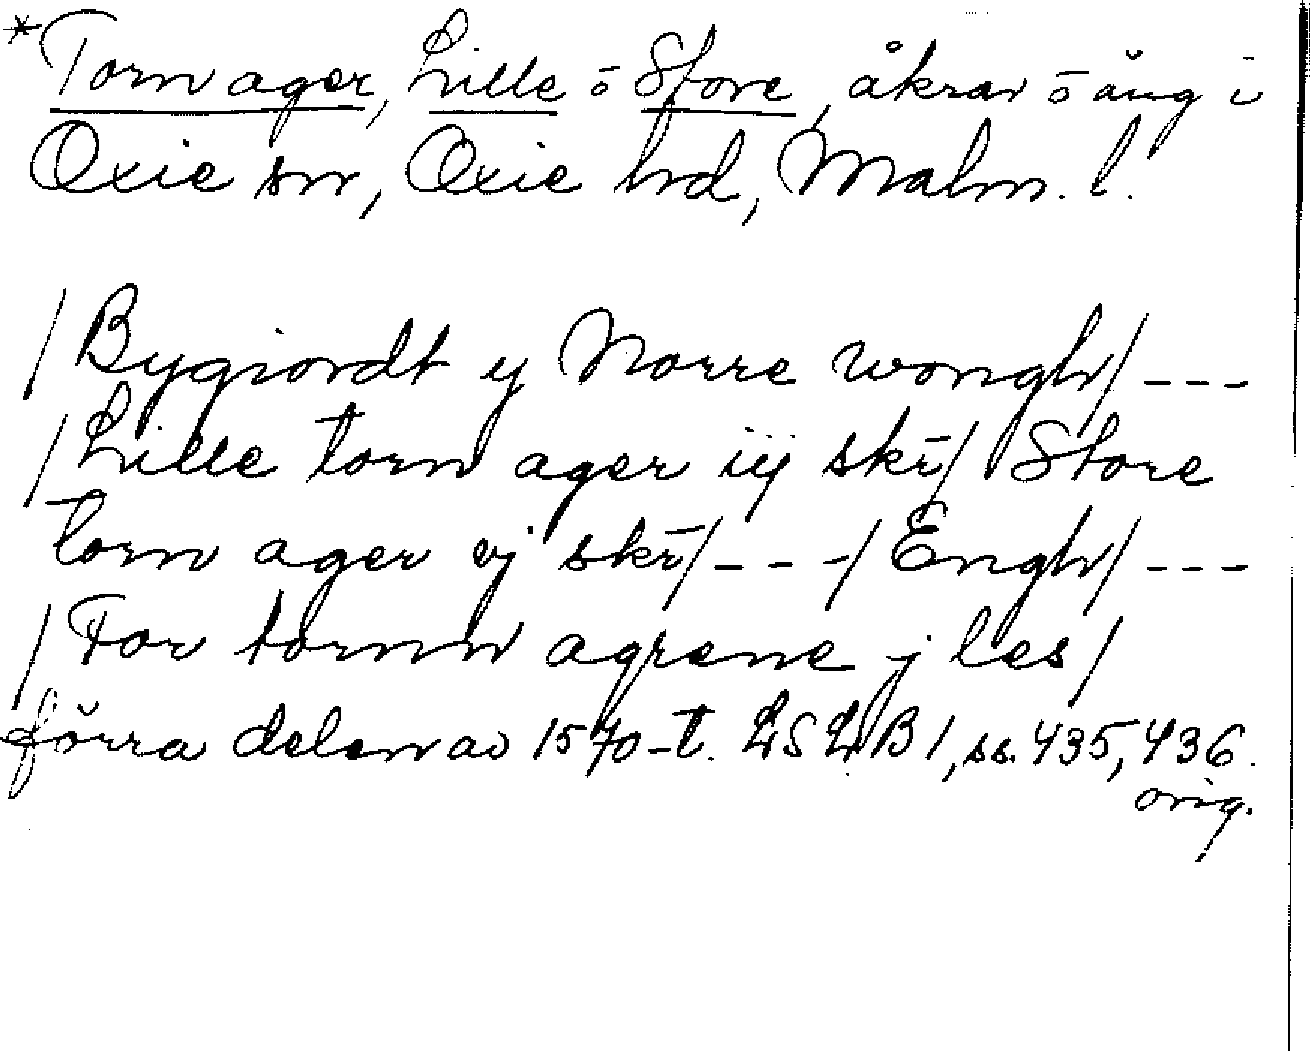 *Torn ager, Lille o Store, åkrar o äng i
Oxie sn, Oxie hd, Malm. l.
/Bygiordt y Norre wongh/ ---
/Lille torn ager iij skr/ Store
torn ager vj skr/ --- /Engh/ ---
/For tornn agrene j les/
förra delen av 1570-t. LSLB 1, ss. 435, 436.
orig.